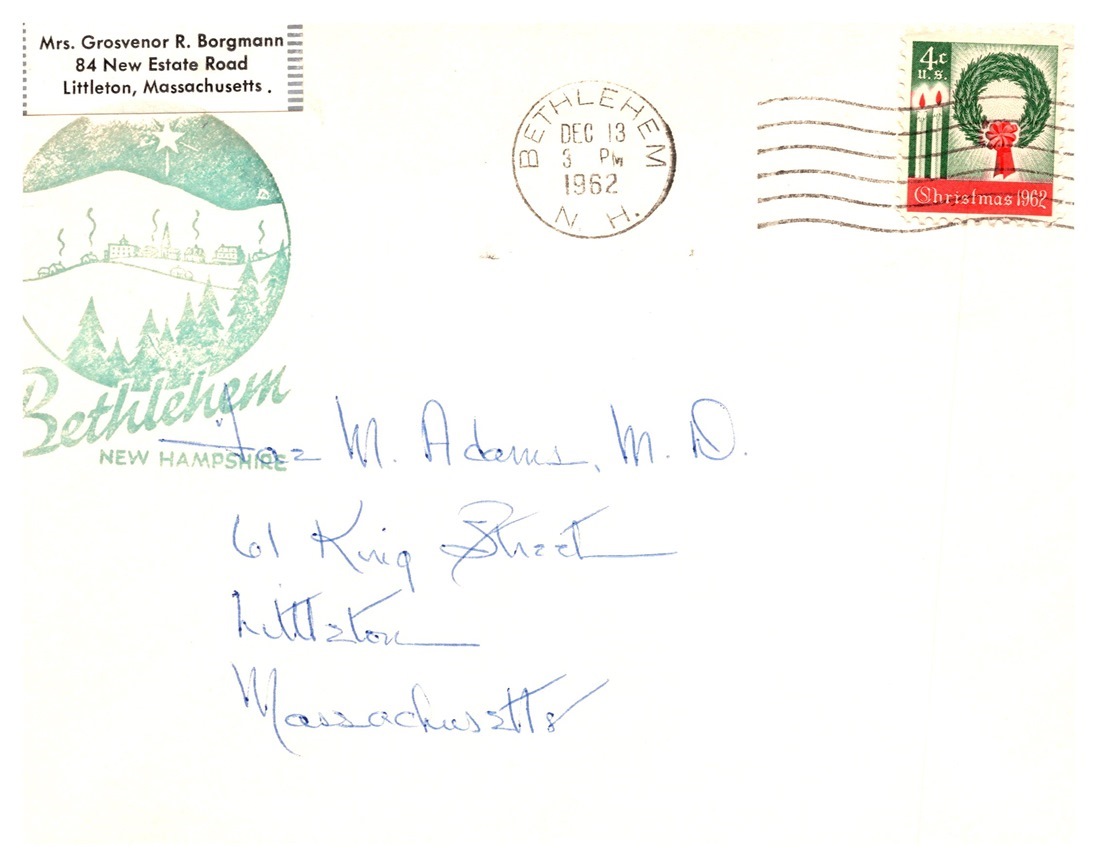 Mrs. Grosvenor R. Borgmann
84 New Estate Road
Littleton, Massachusetts .
BETHLEHEM
DEC 13
3 PM
1962
N. H.
4c
U.S.
Christmas 1962
Bethlehem
NEW HAMPSHIRE
M. Adams, M. D.
61 King Street
Littleton
Massachusetts